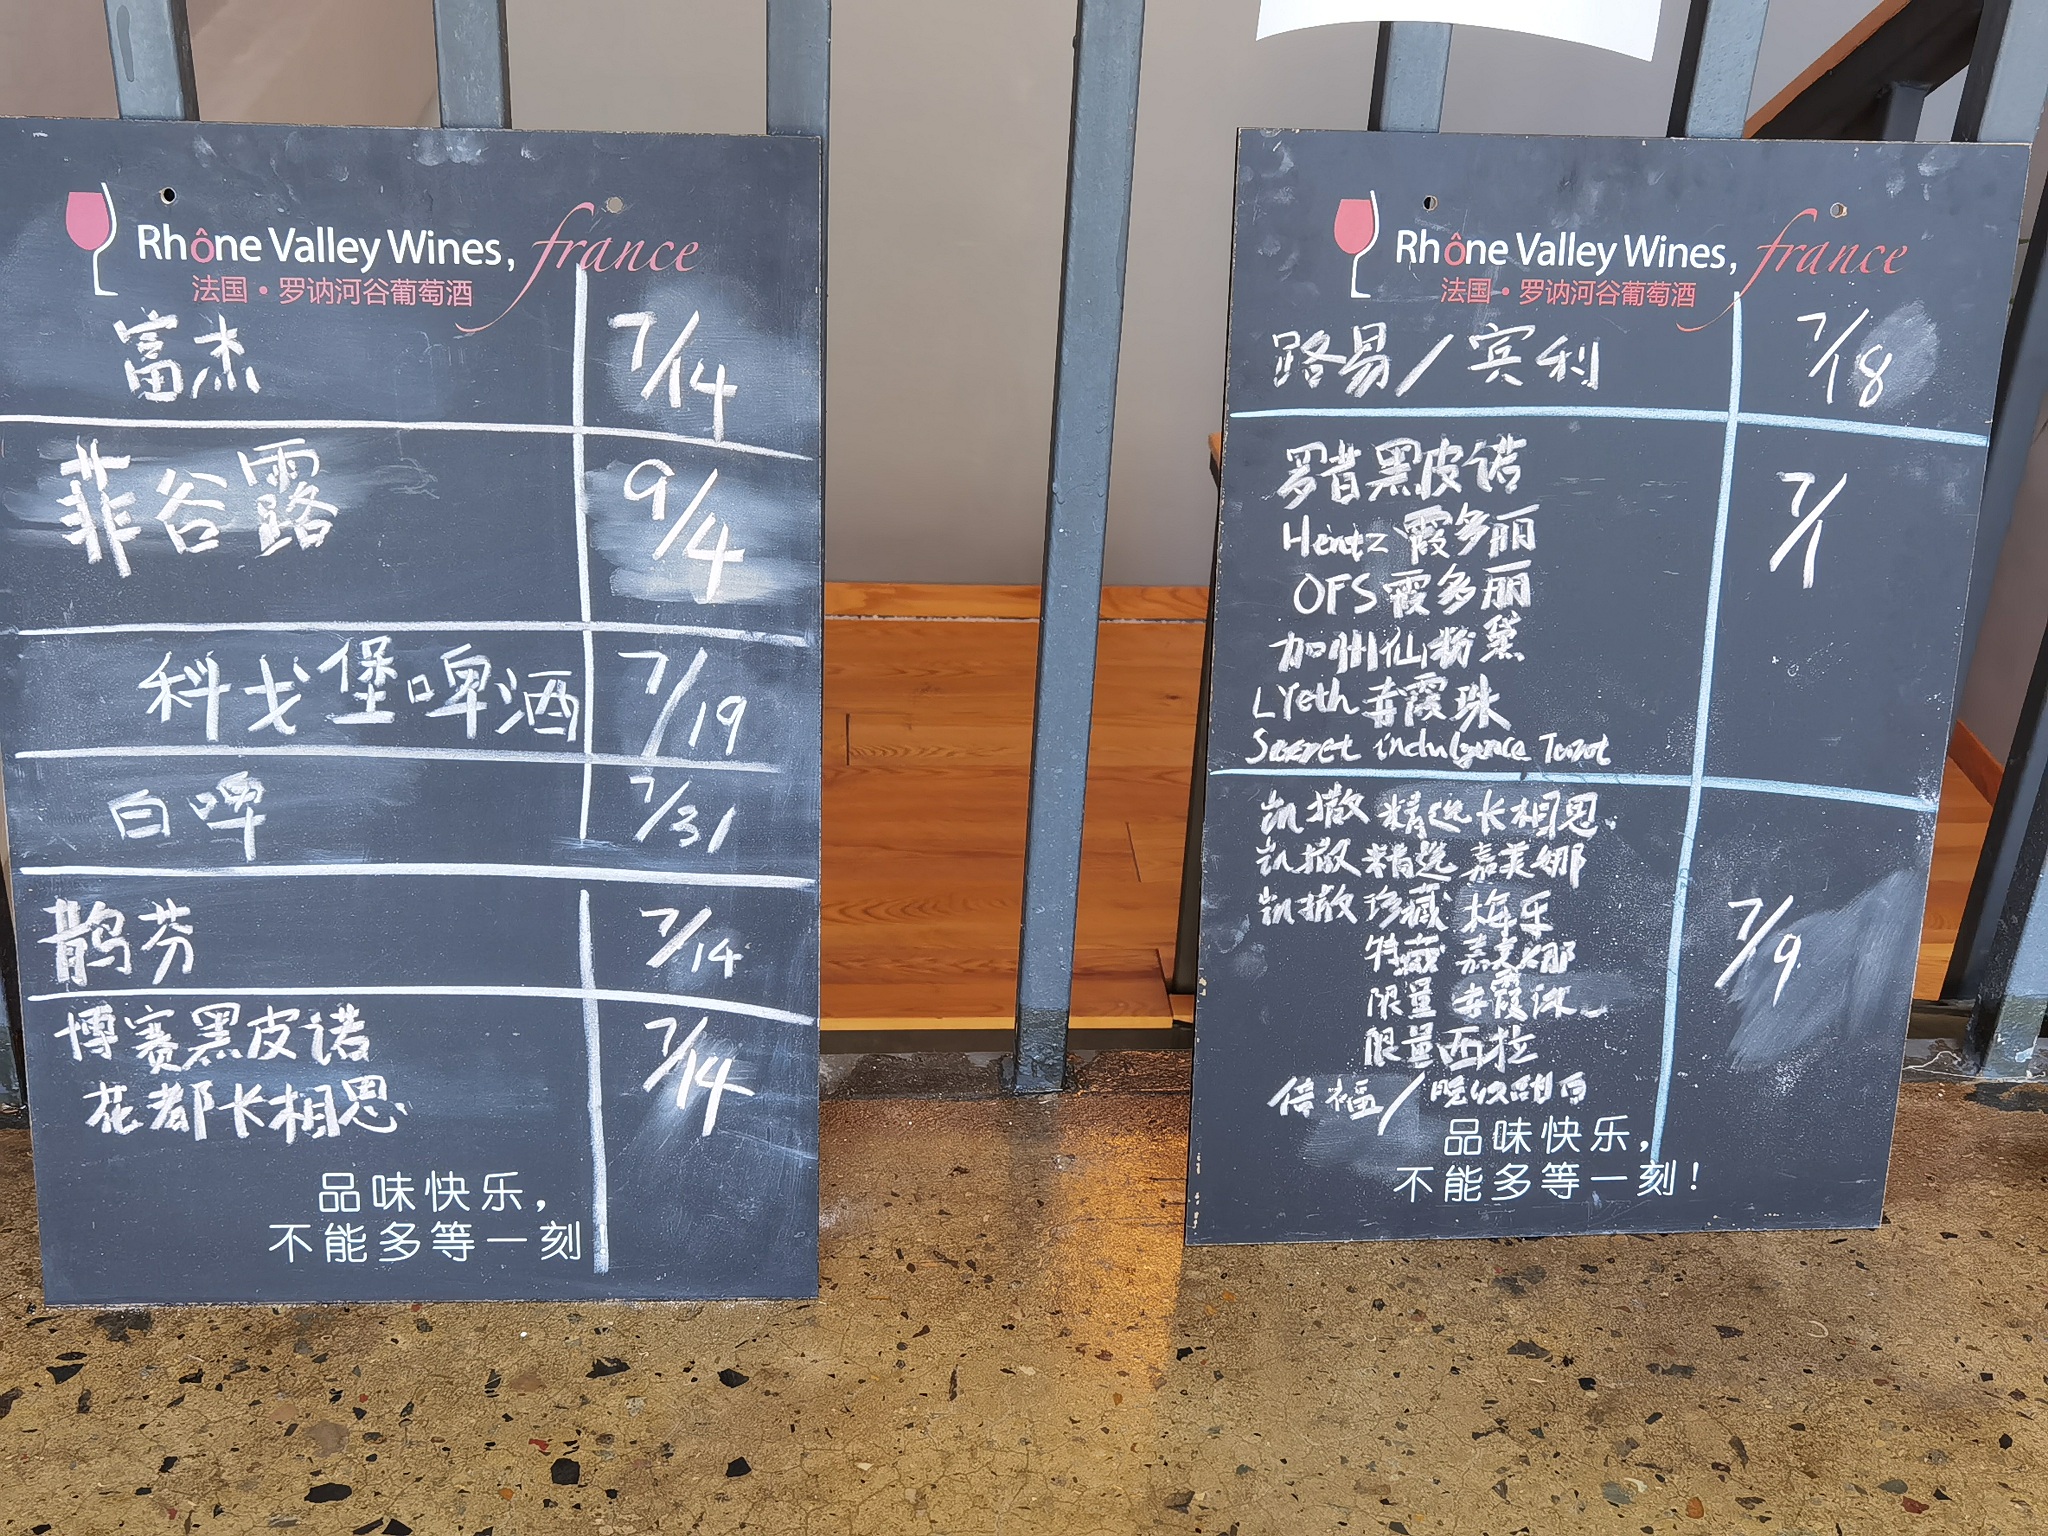 Rhône Valley Wines, france
法国·罗讷河谷葡萄酒
富杰 7/14
菲谷露 9/4
科戈堡啤酒 7/19
白啤 7/31
鹊芬 7/14
博赛黑皮诺 7/14
花都长相思
品味快乐，
不能多等一刻
Rhône Valley Wines, france
法国·罗讷河谷葡萄酒
路易/宾利 7/18
罗肯黑皮诺 7/1
Hentz 霞多丽
OFS 霞多丽
加州仙粉黛
LYeth 赤霞珠
Secret indulgence
凯撒 精选 长相思
凯撒 精选 嘉美娜
凯撒 珍藏 梅乐 7/9
特藏 嘉美娜
限量 赤霞珠
限量西拉
倍福/晚收甜白
品味快乐，
不能多等一刻！